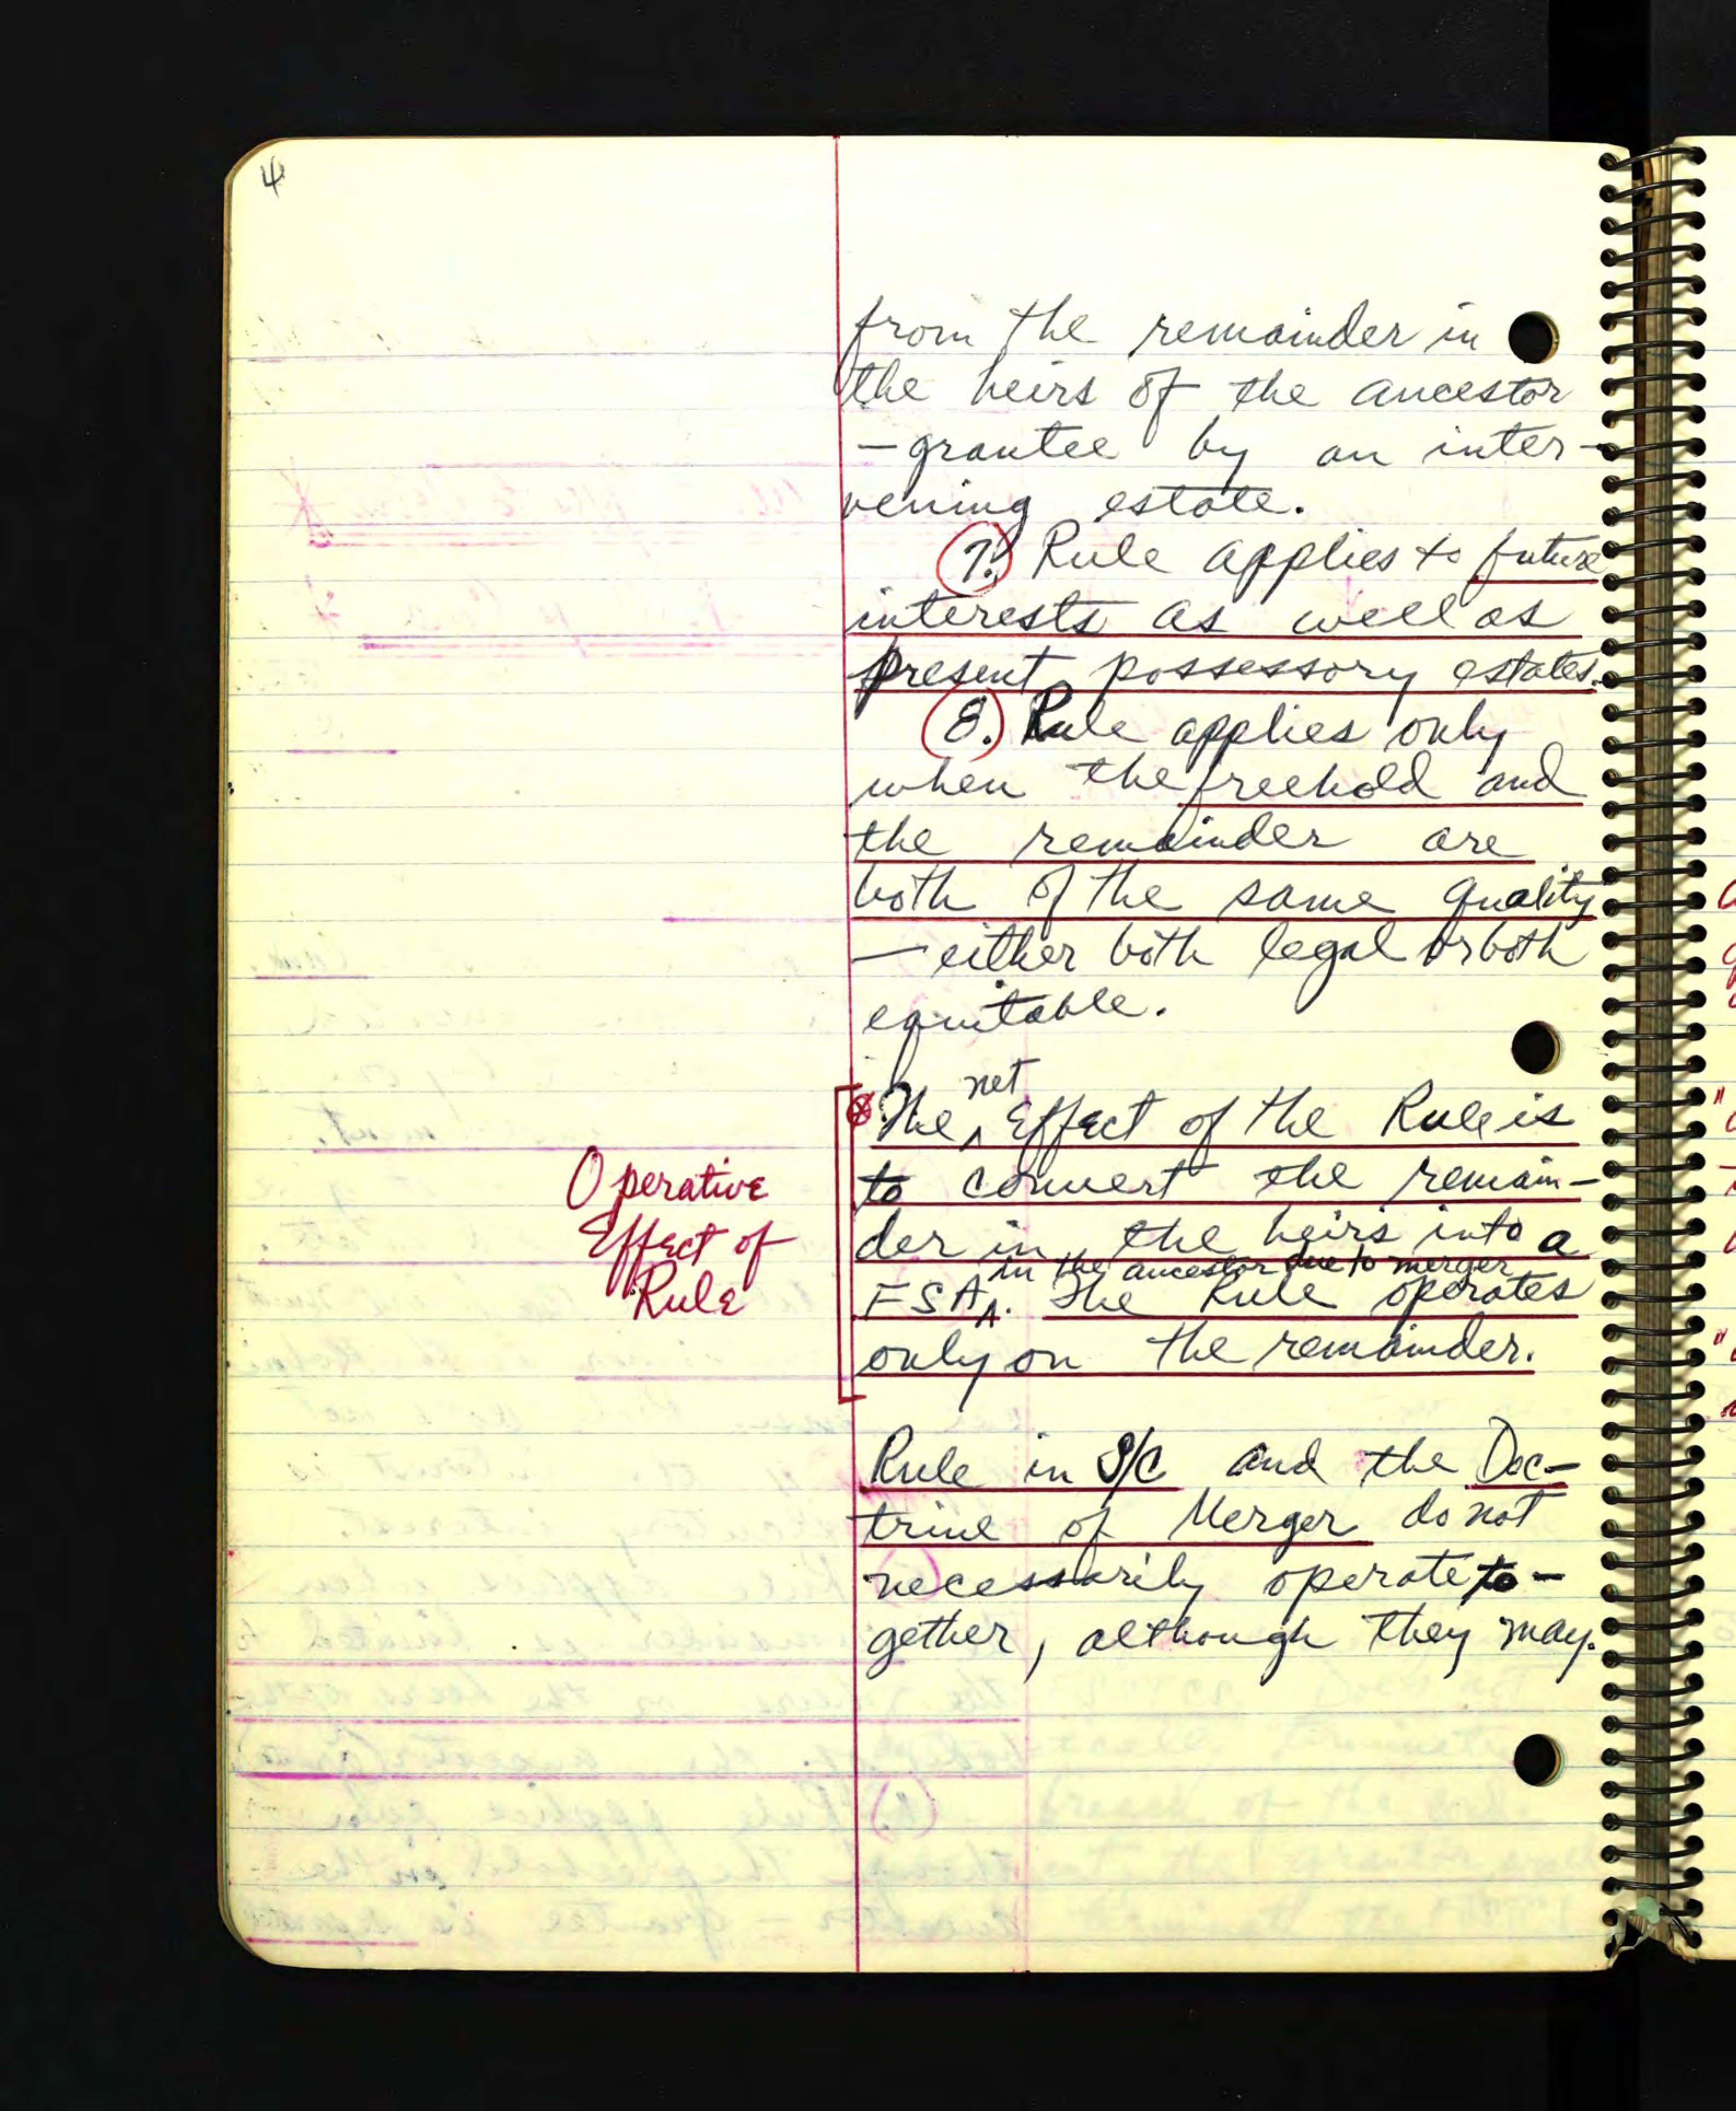 4
from the remainder in
the heirs of the ancestor
-grantee by an inter-
vening estate.
7. Rule applies to future
interests as well as
present possessory estates.
8. Rule applies only
when the freehold and
the remainder are
both of the same quality
- either both legal or both
equitable.
The net Effect of the Rule is
to convert the remain-
der in the heirs into a
FSA in the ancestor due to merger. The Rule operates
only on the remainder.
Operative
Effect of
Rule
Rule in S/C and the Doc-
trine of Merger do not
necessarily operate to-
gether, although they may.